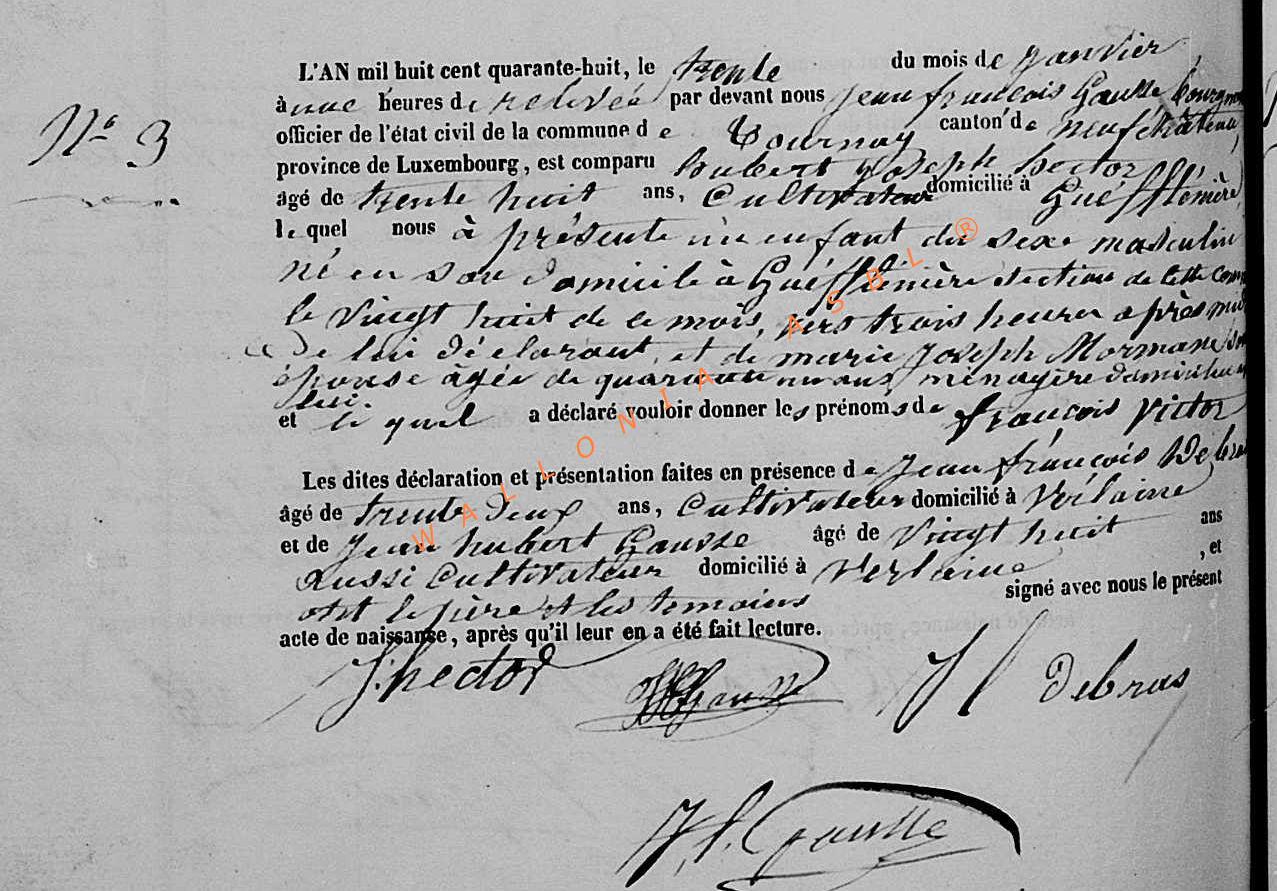 L'AN mil huit cent quarante-huit, le trente du mois de janvier
à une heures de relevée par devant nous jean françois Gausse bourgmes
N° 3
officier de l'état civil de la commune de Tournay canton de neufchâteau,
province de Luxembourg, est comparu hubert joseph hector
âgé de trente huit ans, Cultivateur domicilié à Gué
le quel nous à présenté un enfant du sexe masculin
né en son domicile à section de cette com
le Vingt huit de ce mois, vers trois heures après mid
de lui déclarant, et de marie joseph Mormane, son
épouse âgée de quarante ans ménagère domiciliée
lui.
et le quel a déclaré vouloir donner les prénoms de françois Victor
Les dites déclaration et présentation faites en présence de jean françois Debras
âgé de trente deux ans, Cultivateur domicilié à Verlaine
et de jean hubert Gausse âgé de Vingt huit ans
aussi Cultivateur domicilié à Verlaine , et
ont le père et les temoins signé avec nous le présent
acte de naissance, après qu'il leur en a été fait lecture.
J. hector Gausse Debras
Gausse
WALLONIA ASBL ®